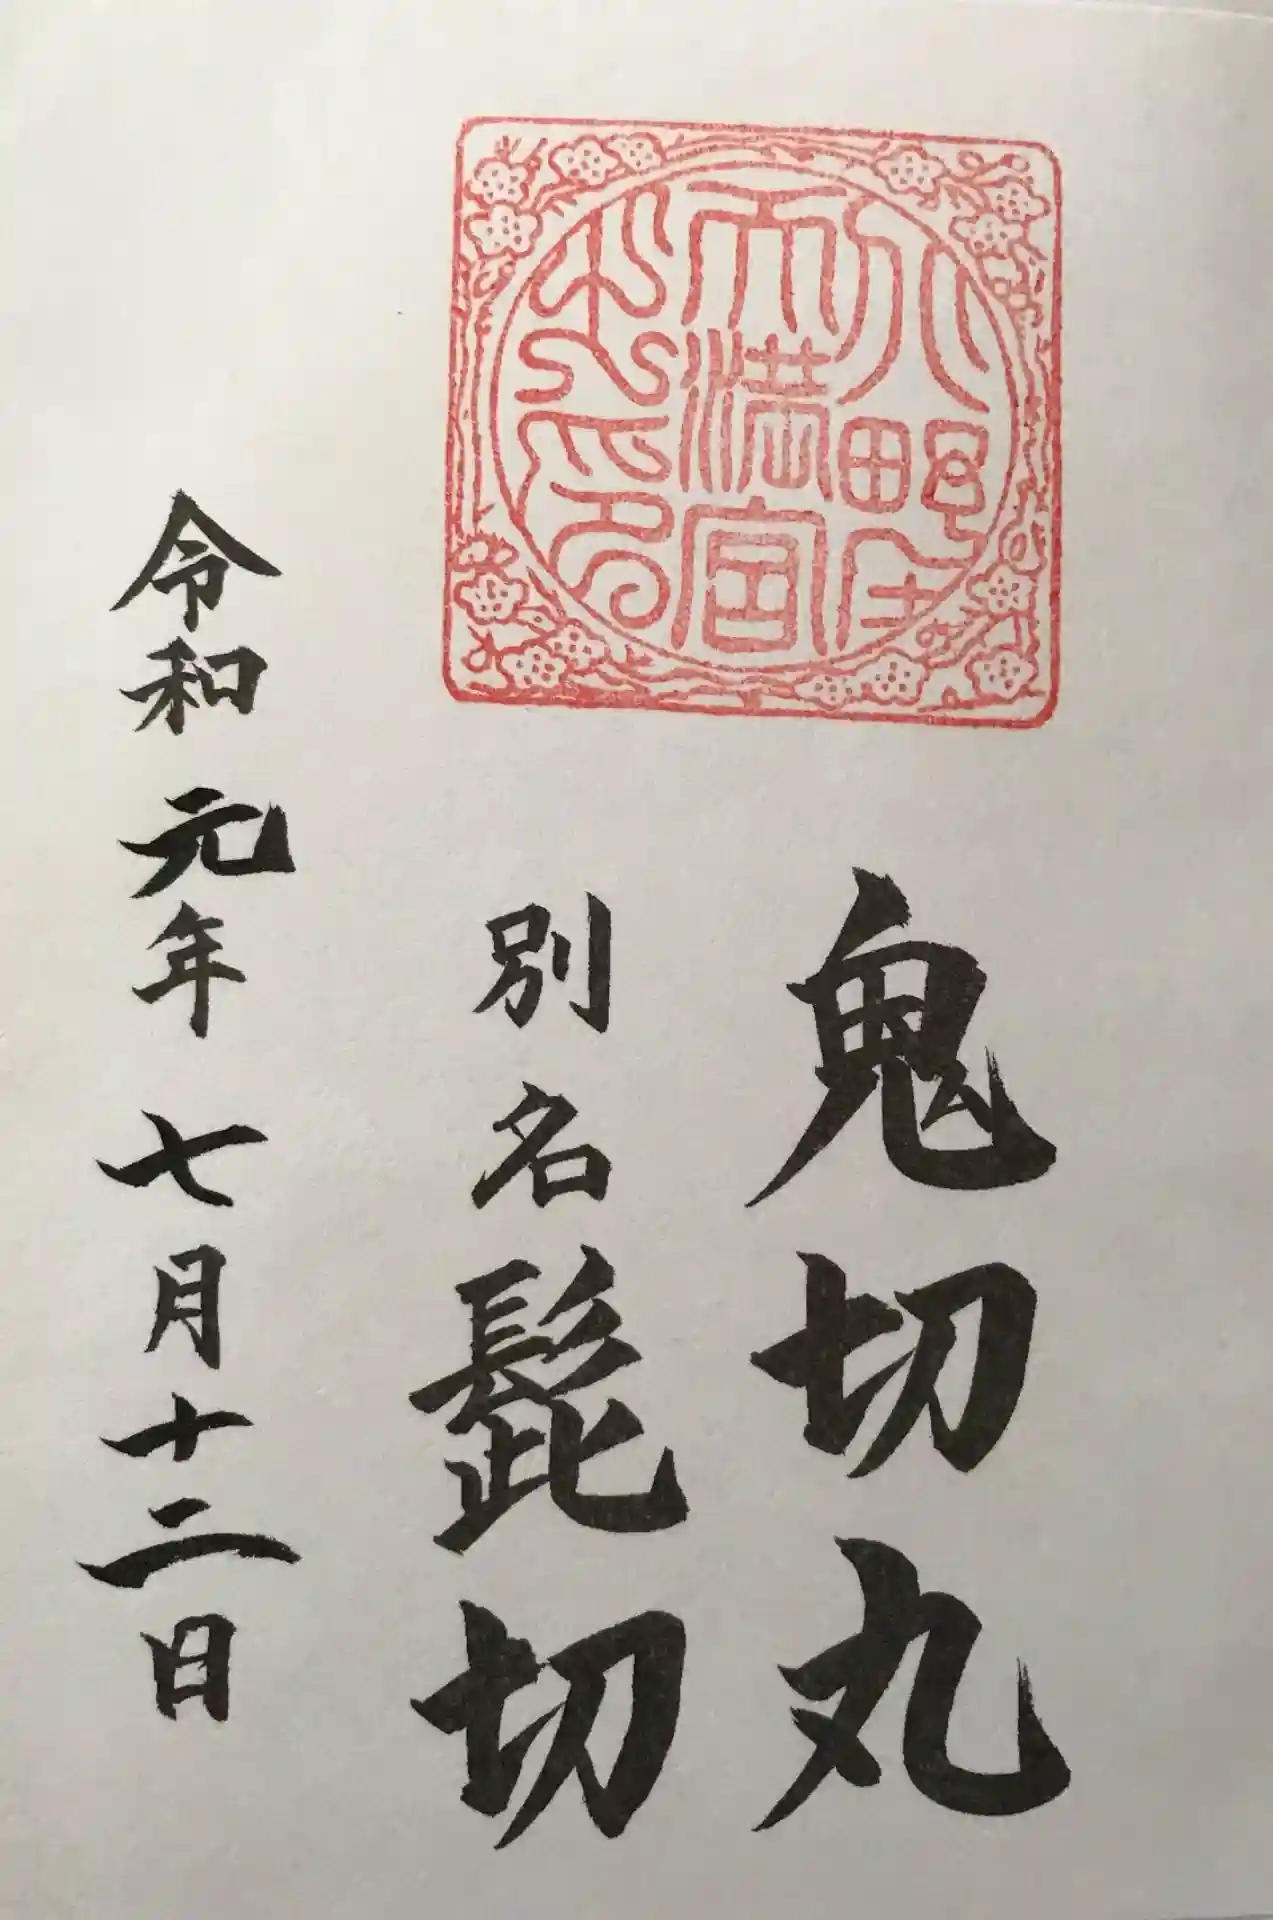 北野
天満宮
之印
鬼切丸
別名髭切
令和元年七月十二日